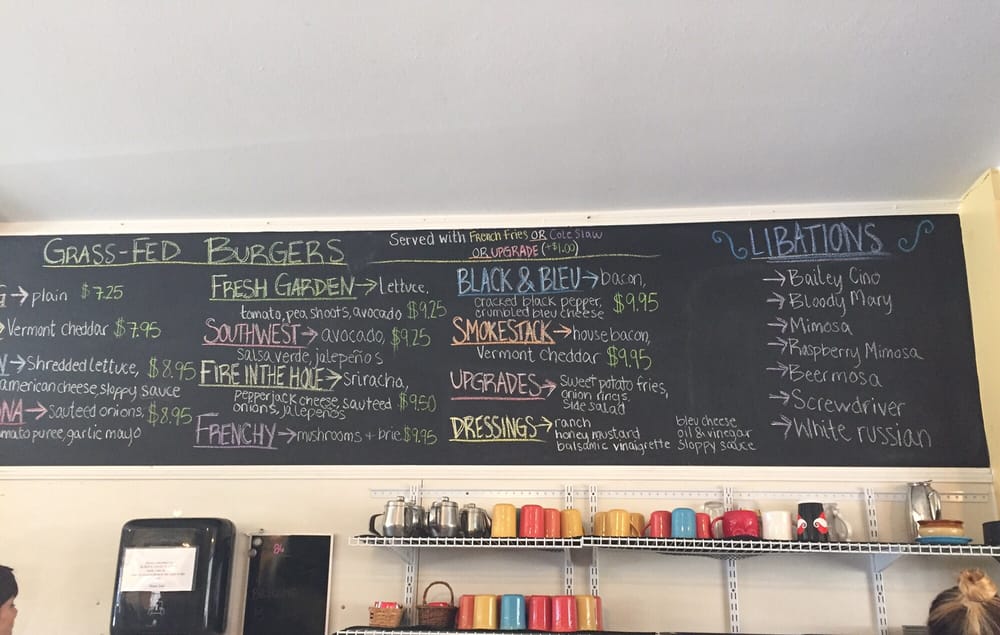 GRASS-FED BURGERS
Served with French Fries OR Cole Slaw
OR UPGRADE (+$1.00)
→ plain $7.25
→ Vermont cheddar $7.95
→ Shredded lettuce, $8.95
american cheese, sloppy sauce
→ sauteed onions, $8.95
puree, garlic mayo
FRESH GARDEN → lettuce,
tomato, pea shoots, avocado $9.25
SOUTHWEST → avocado, $9.25
Salsa verde, jalepeños
FIRE IN THE HOLE → sriracha,
pepperjack cheese, sauteed $9.50
onions, jalepeños
FRENCHY → mushrooms + brie $9.95
BLACK & BLEU → bacon,
cracked black pepper, $9.95
crumbled bleu cheese
SMOKESTACK → house bacon,
Vermont cheddar $9.95
UPGRADES → sweet potato fries,
onion rings,
side salad
DRESSINGS → ranch
honey mustard
balsamic vinaigrette
bleu cheese
oil & vinegar
sloppy sauce
LIBATIONS
→ Bailey Cino
→ Bloody Mary
→ Mimosa
→ Raspberry Mimosa
→ Beermosa
→ Screwdriver
→ White russian
86